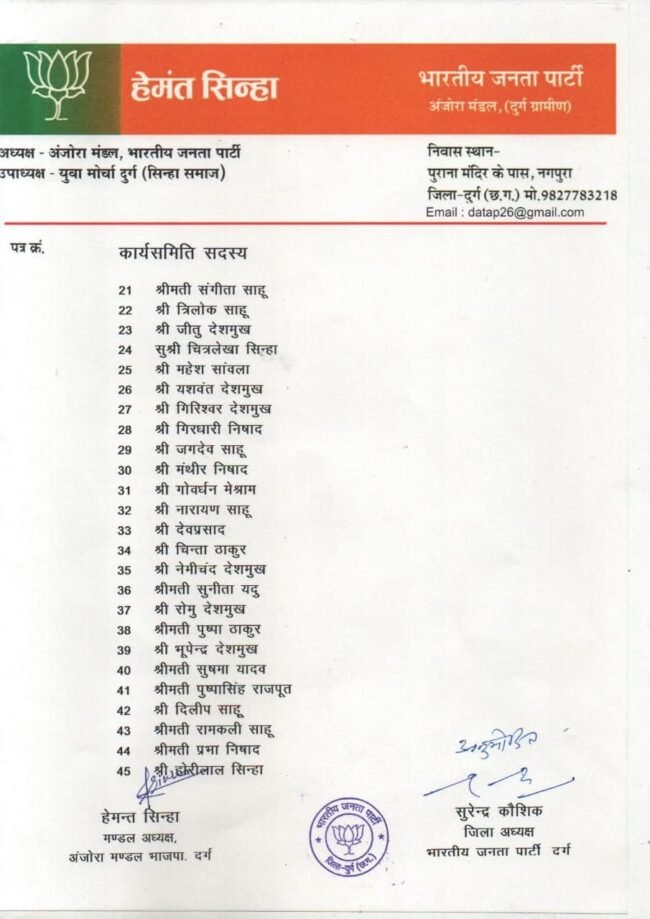 हेमंत सिन्हा
भारतीय जनता पार्टी
अंजोरा मंडल, (दुर्ग ग्रामीण)
अध्यक्ष - अंजोरा मंडल, भारतीय जनता पार्टी
उपाध्यक्ष - युवा मोर्चा दुर्ग (सिन्हा समाज)
निवास स्थान-
पुराना मंदिर के पास, नगपुरा
जिला-दुर्ग (छ.ग.) मो.9827783218
Email : datap26@gmail.com
पत्र क्रं.
कार्यसमिति सदस्य
21 श्रीमती संगीता साहू
22 श्री त्रिलोक साहू
23 श्री जीतु देशमुख
24 सुश्री चित्रलेखा सिन्हा
25 श्री महेश सांवला
26 श्री यशवंत देशमुख
27 श्री गिरिश्वर देशमुख
28 श्री गिरधारी निषाद
29 श्री जगदेव साहू
30 श्री मंथीर निषाद
31 श्री गोवर्धन मेश्राम
32 श्री नारायण साहू
33 श्री देवप्रसाद
34 श्री चिन्ता ठाकुर
35 श्री नेमीचंद देशमुख
36 श्रीमती सुनीता यदु
37 श्री रोमु देशमुख
38 श्रीमती पुष्पा ठाकुर
39 श्री भूपेन्द्र देशमुख
40 श्रीमती सुषमा यादव
41 श्रीमती पुष्पासिंह राजपूत
42 श्री दिलीप साहू
43 श्रीमती रामकली साहू
44 श्रीमती प्रभा निषाद
45 श्री होरीलाल सिन्हा
अनुमोदित
हेमन्त सिन्हा
मण्डल अध्यक्ष,
अंजोरा मण्डल भाजपा. दर्ग
भारतीय जनता पार्टी
जिला-दुर्ग (छ.ग.)
सुरेन्द्र कौशिक
जिला अध्यक्ष
भारतीय जनता पार्टी दर्ग